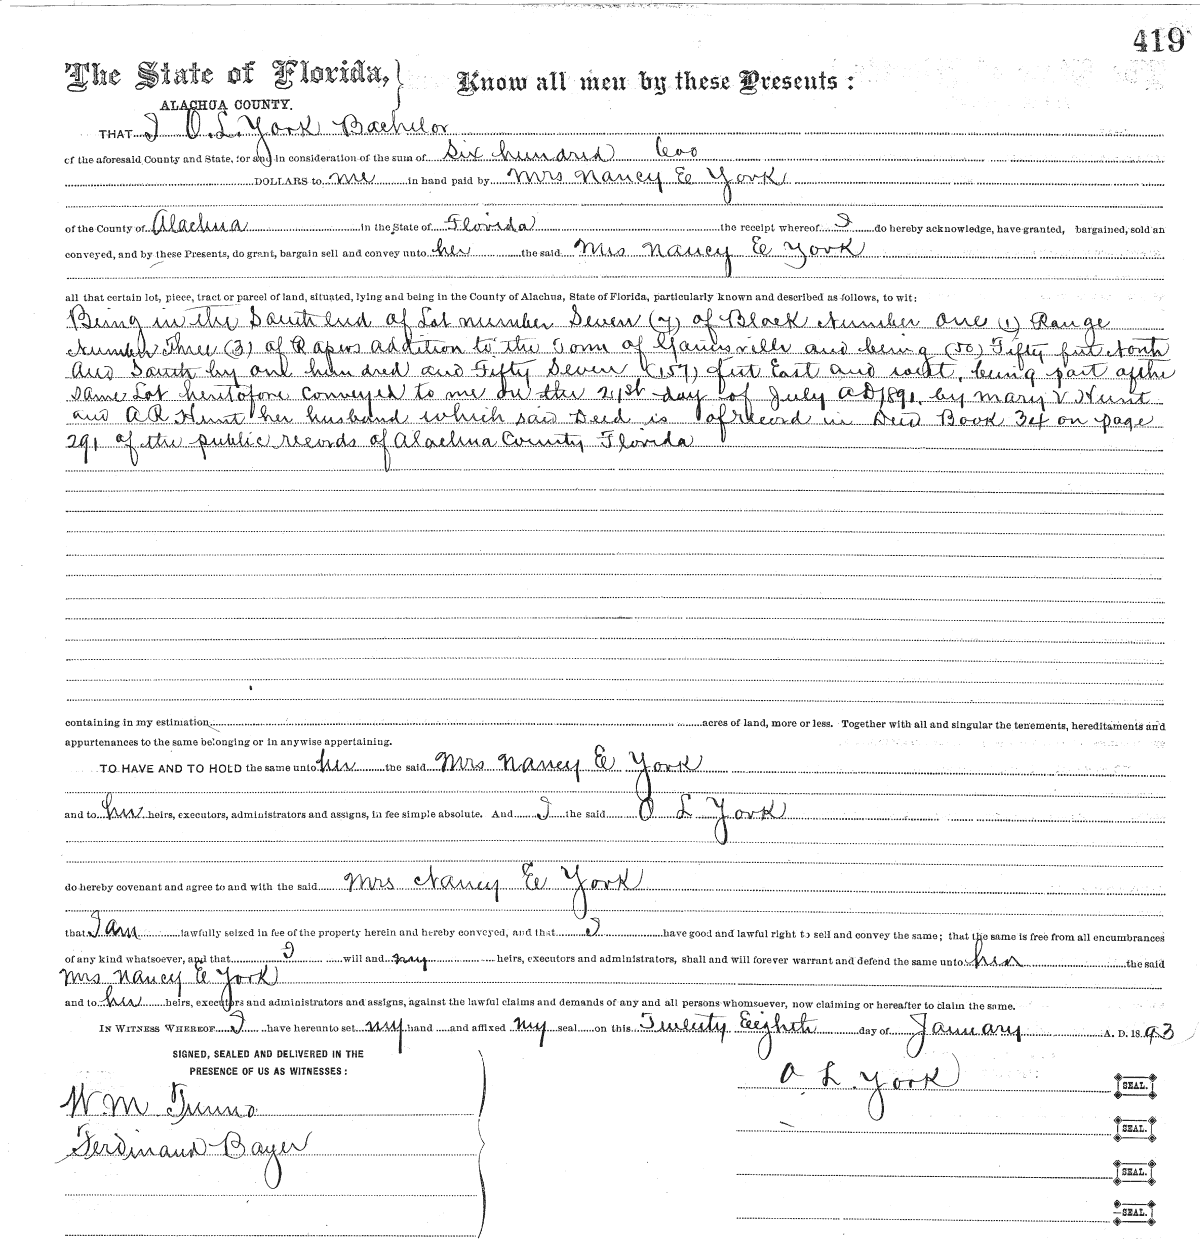 419
The State of Florida, Know all men by these Presents :
ALACHUA COUNTY.
THAT I O. L. York Bachelor
of the aforesaid County and State, for and in consideration of the sum of Six hundred 600
DOLLARS to me in hand paid by Mrs Nancy E York
of the County of Alachua in the State of Florida the receipt whereof I do hereby acknowledge, have granted, bargained, sold an
conveyed, and by these Presents, do grant, bargain sell and convey unto her the said Mrs Nancy E York
all that certain lot, piece, tract or parcel of land, situated, lying and being in the County of Alachua, State of Florida, particularly known and described as follows, to wit:
Being in the South end of Lot number Seven (7) of Block Number One (1) Range
Number Three (3) of Rapers Addition to the Town of Gainesville and being (50) Fifty feet North
And South by one hundred and Fifty Seven (157) feet East and west, being part of the
same Lot heretofore conveyed to me on the 21st day of July AD 1891 by Mary V. Hunt
and A R Hunt her husband which said Deed is of record in Deed Book 34 on page
291 of the public records of Alachua County Florida
containing in my estimation acres of land, more or less. Together with all and singular the tenements, hereditaments and
appurtenances to the same belonging or in anywise appertaining.
TO HAVE AND TO HOLD the same unto her the said Mrs Nancy E York
and to her heirs, executors, administrators and assigns, in fee simple absolute. And I the said O L York
do hereby covenant and agree to and with the said Mrs Nancy E York
that I am lawfully seized in fee of the property herein and hereby conveyed, and that I have good and lawful right to sell and convey the same; that the same is free from all encumbrances
of any kind whatsoever, and that I will and my heirs, executors and administrators, shall and will forever warrant and defend the same unto her the said
Mrs Nancy E York
and to her heirs, executors and administrators and assigns, against the lawful claims and demands of any and all persons whomsoever, now claiming or hereafter to claim the same.
IN WITNESS WHEREOF I have hereunto set my hand and affixed my seal on this Twenty Eighth day of January A. D. 1893
SIGNED, SEALED AND DELIVERED IN THE
PRESENCE OF US AS WITNESSES :
O L York SEAL.
W. M. 
SEAL.
Ferdinand Bayer
SEAL.
SEAL.